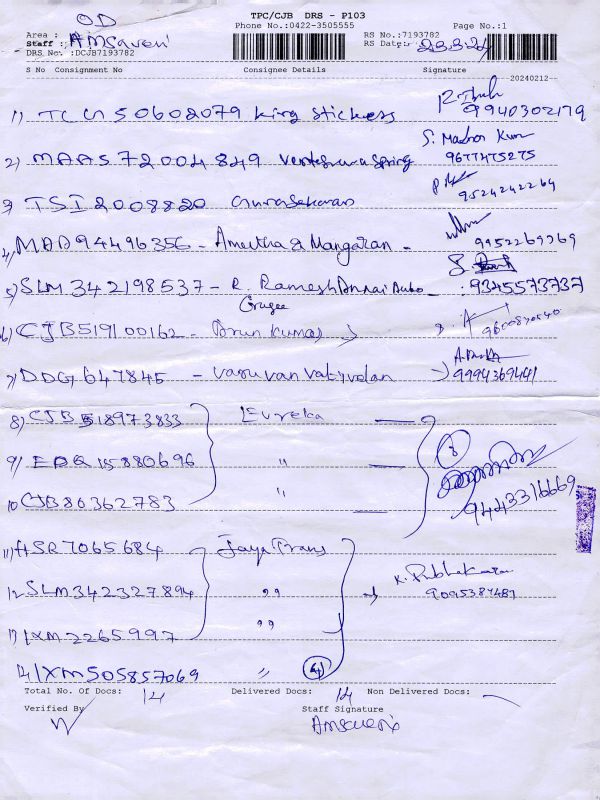 OD
TPC/CJB DRS - P103
Phone No.:0422-3505555 Page No.:1
Area :
RS No.:7193782
Staff : Amsaveni
RS Date: 23.3.24
DRS No.:DCJB7193782
S No Consignment No Consignee Details Signature
20240212
1) TCN50602079 King Stickers 9940302179
2) MAAS72004849 Venteswara Spring S. Madhan Kumar 9677475275
3) TSI2008820 Gunasekaran 9524242264
4) MAA94496356 - Amertha & Mangaran - 9952269769
5) SLM342198537 - R. Ramesh Annai Auto 9345573737
Garage
6) CJB519100162 - Arun Kumar
7) DDG647845 - Vasuvan Vativelan 9994369441
8) CJB518973833 Eureka
9) EDQ15880696 " 8
10 CJB80362783 " 9443316669
11) HSR7065684 Jaya Trans
12 SLM342327894 ,, K. Prabhakaran 9095387487
13) IXM2265997 ,,
14 IXM505857069 " 4
Total No. Of Docs: 14 Delivered Docs: 14 Non Delivered Docs:
Verified By Staff Signature
Amsaveni